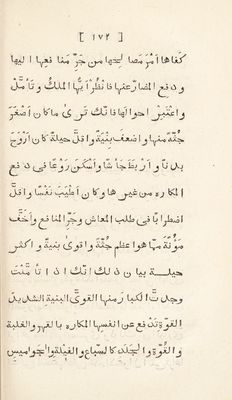 [ ١٧٢ ]
كفاها امر مصالحها من جرّ منافعها اليها
ودفع المضارّ عنها فانظر ايّها الملك وتأمّل
واعتبر احوالها فانّك ترى ما كان اصغر
جثّة منها واضعف بنية واقلّ حيلة كان اروح
بدنًا واربط جأشًا واسكن روعًا فى دفع
المكاره من غيرها وكان اطيب نفسًا واقلّ
اضطرابًا فى طلب المعاش وجرّ المنافع واخفّ
مؤنة ممّا هو اعظم جثّة واقوى بنية واكثر
حيلة بيان ذلك انّك اذا تأمّلت
وجدتّ الكبار منها القوىّ البنية الشديد
القوّة تدفع عن انفسها المكاره بالقهر والغلبة
والقوّة والجلد كالسباع والفيلة والجواميس